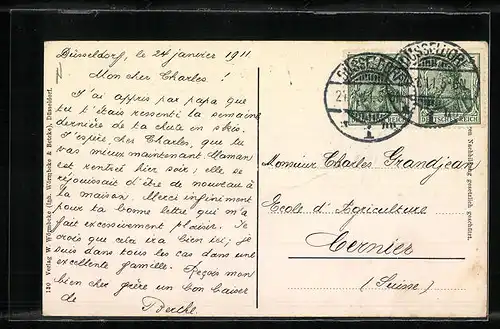 Düsseldorf, le 24 janvier 1911.
Mon cher Charles!
J'ai appris par papa que
tu t'étais ressenti la semaine
dernière de ta chute en skis.
J'espère, cher Charles, que tu
vas mieux maintenant. Maman
est rentrée hier soir; elle se
réjouissait d'être de nouveau à
la maison. Merci infiniment
pour ta bonne lettre qui m'a
fait excessivement plaisir. Je
crois que cela ira bien ici; je
suis dans tous les cas dans une
excellente famille. Reçois mon
bien cher frère un bon baiser
de Berthe.
130 Verlag W. Würmbcke (Inh. Würmbcke & Benke), Düsseldorf.
DÜSSELDORF
DÜSSELDORF
Monsieur Charles Grandjean
Ecole d'Agriculture
Cernier
(Suisse)
Nachbildung gesetzlich geschützt.